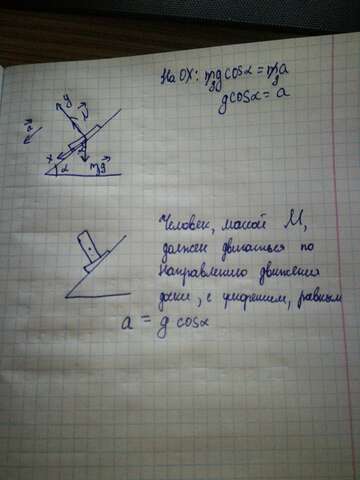 На OX: m₈gcosα = m₈a
gcosα = a
y
N
a
x
α
mg
Человек, массой M,
должен двигаться по
направлению движения
доски, с ускорением, равным
a = g cosα